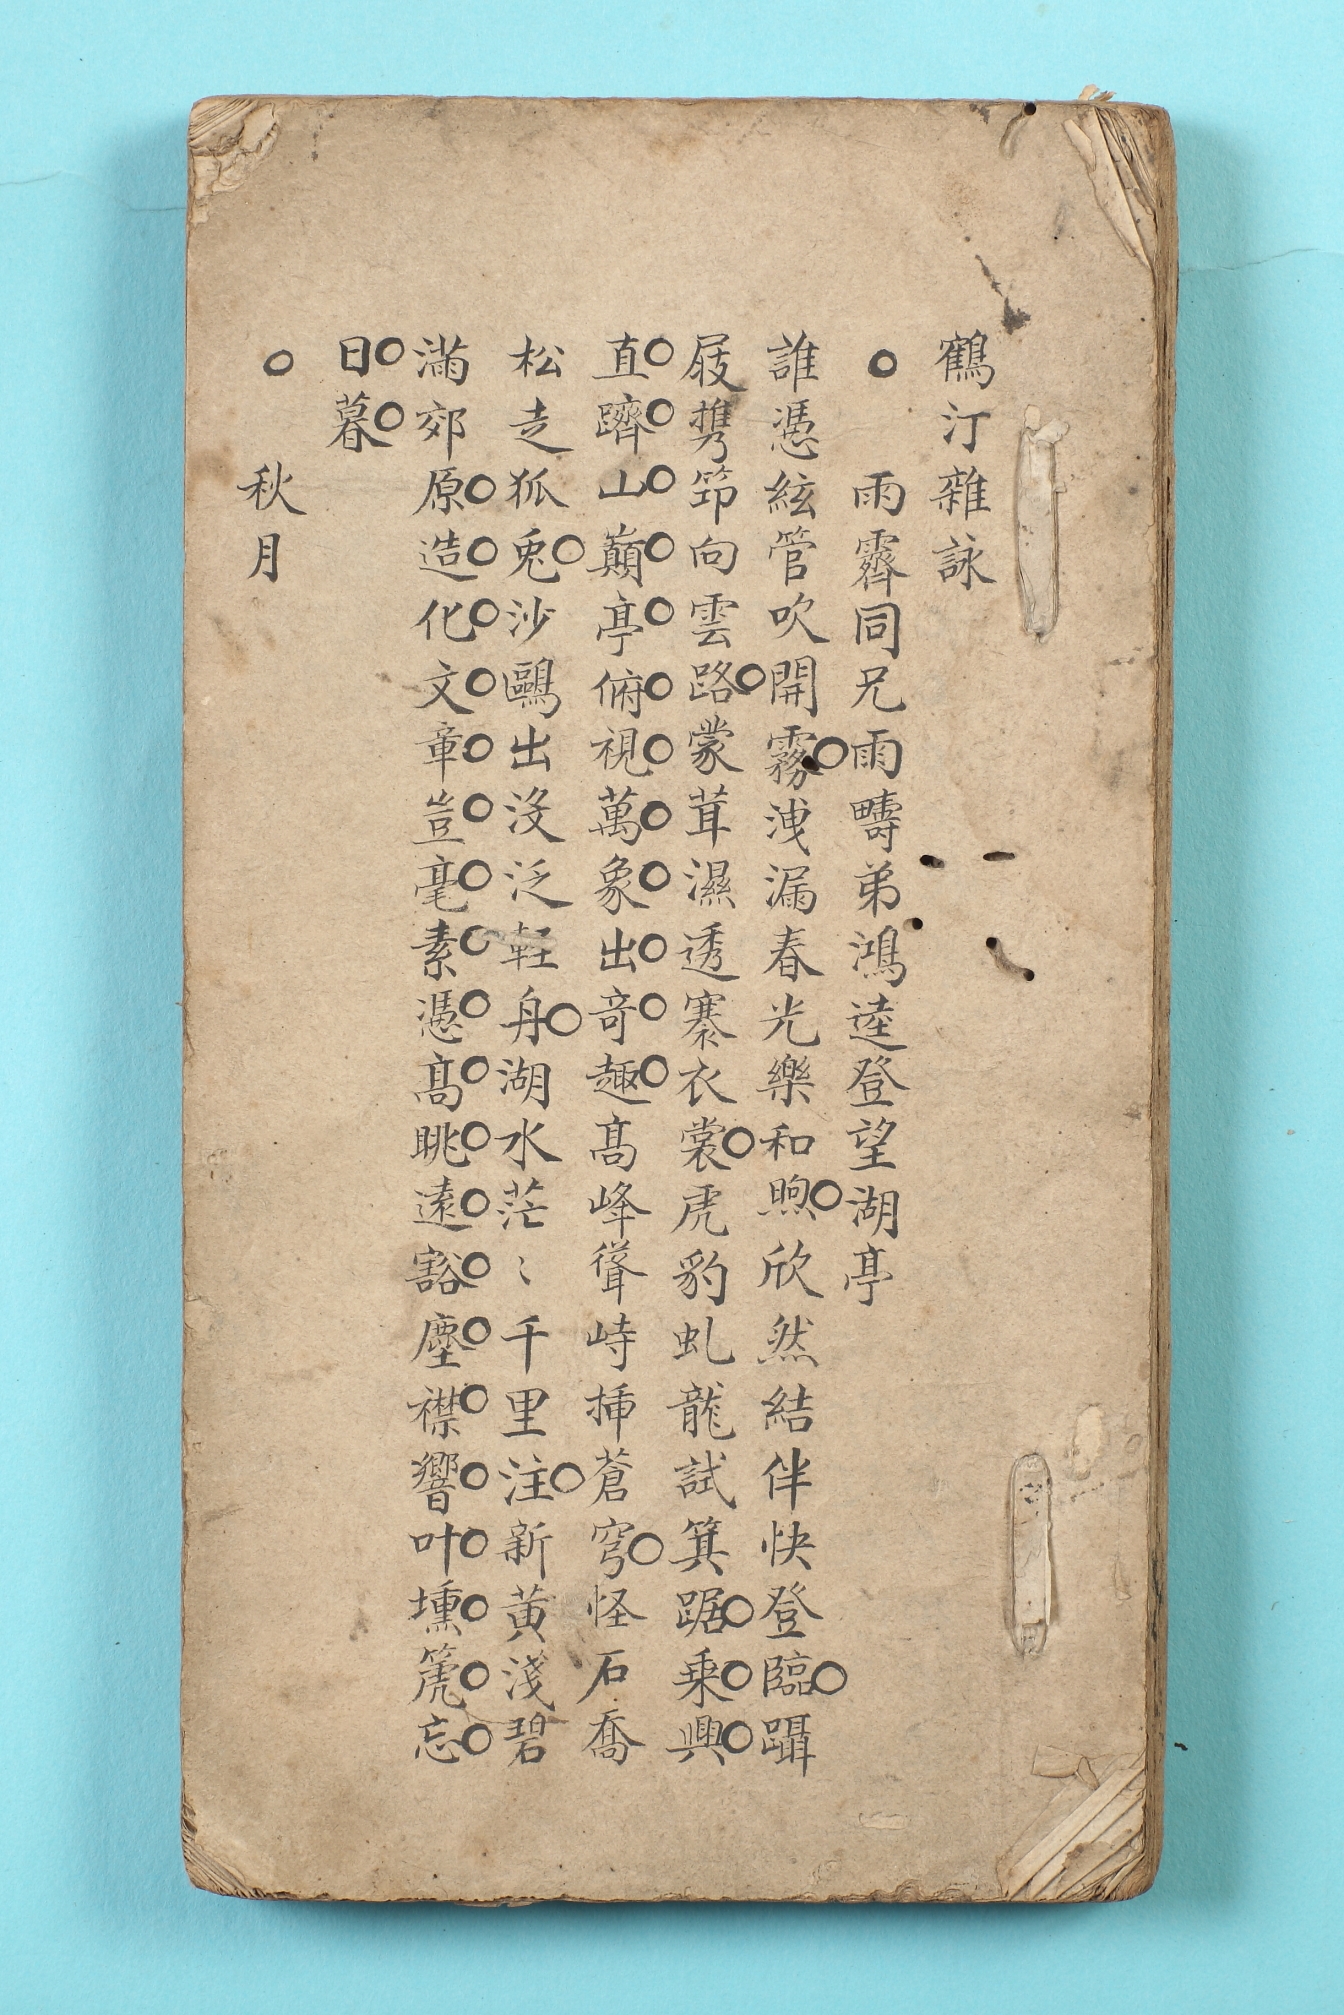 鶴汀雜詠
○雨霽同兄雨疇弟鴻逵登望湖亭
誰憑絃管吹開霧○洩漏春光樂和煦○欣然結伴快登臨○躡
屐携筇向雲路○蒙茸濕透褰衣裳○虎豹虬龍試箕踞○乗○興○
直○躋○山○巔○亭○俯○視○萬○象○出○竒○趣○髙峰聳峙揷蒼穹○怪石喬
松走狐兎○沙鷗出没泛輕舟○湖水茫〻千里注○新黄淺碧
滿郊原○造○化○文○章○豈○毫○素○憑○髙○眺○遠○豁○塵○襟○響○叶○壎○篪○忘○
日○暮○
○秋月